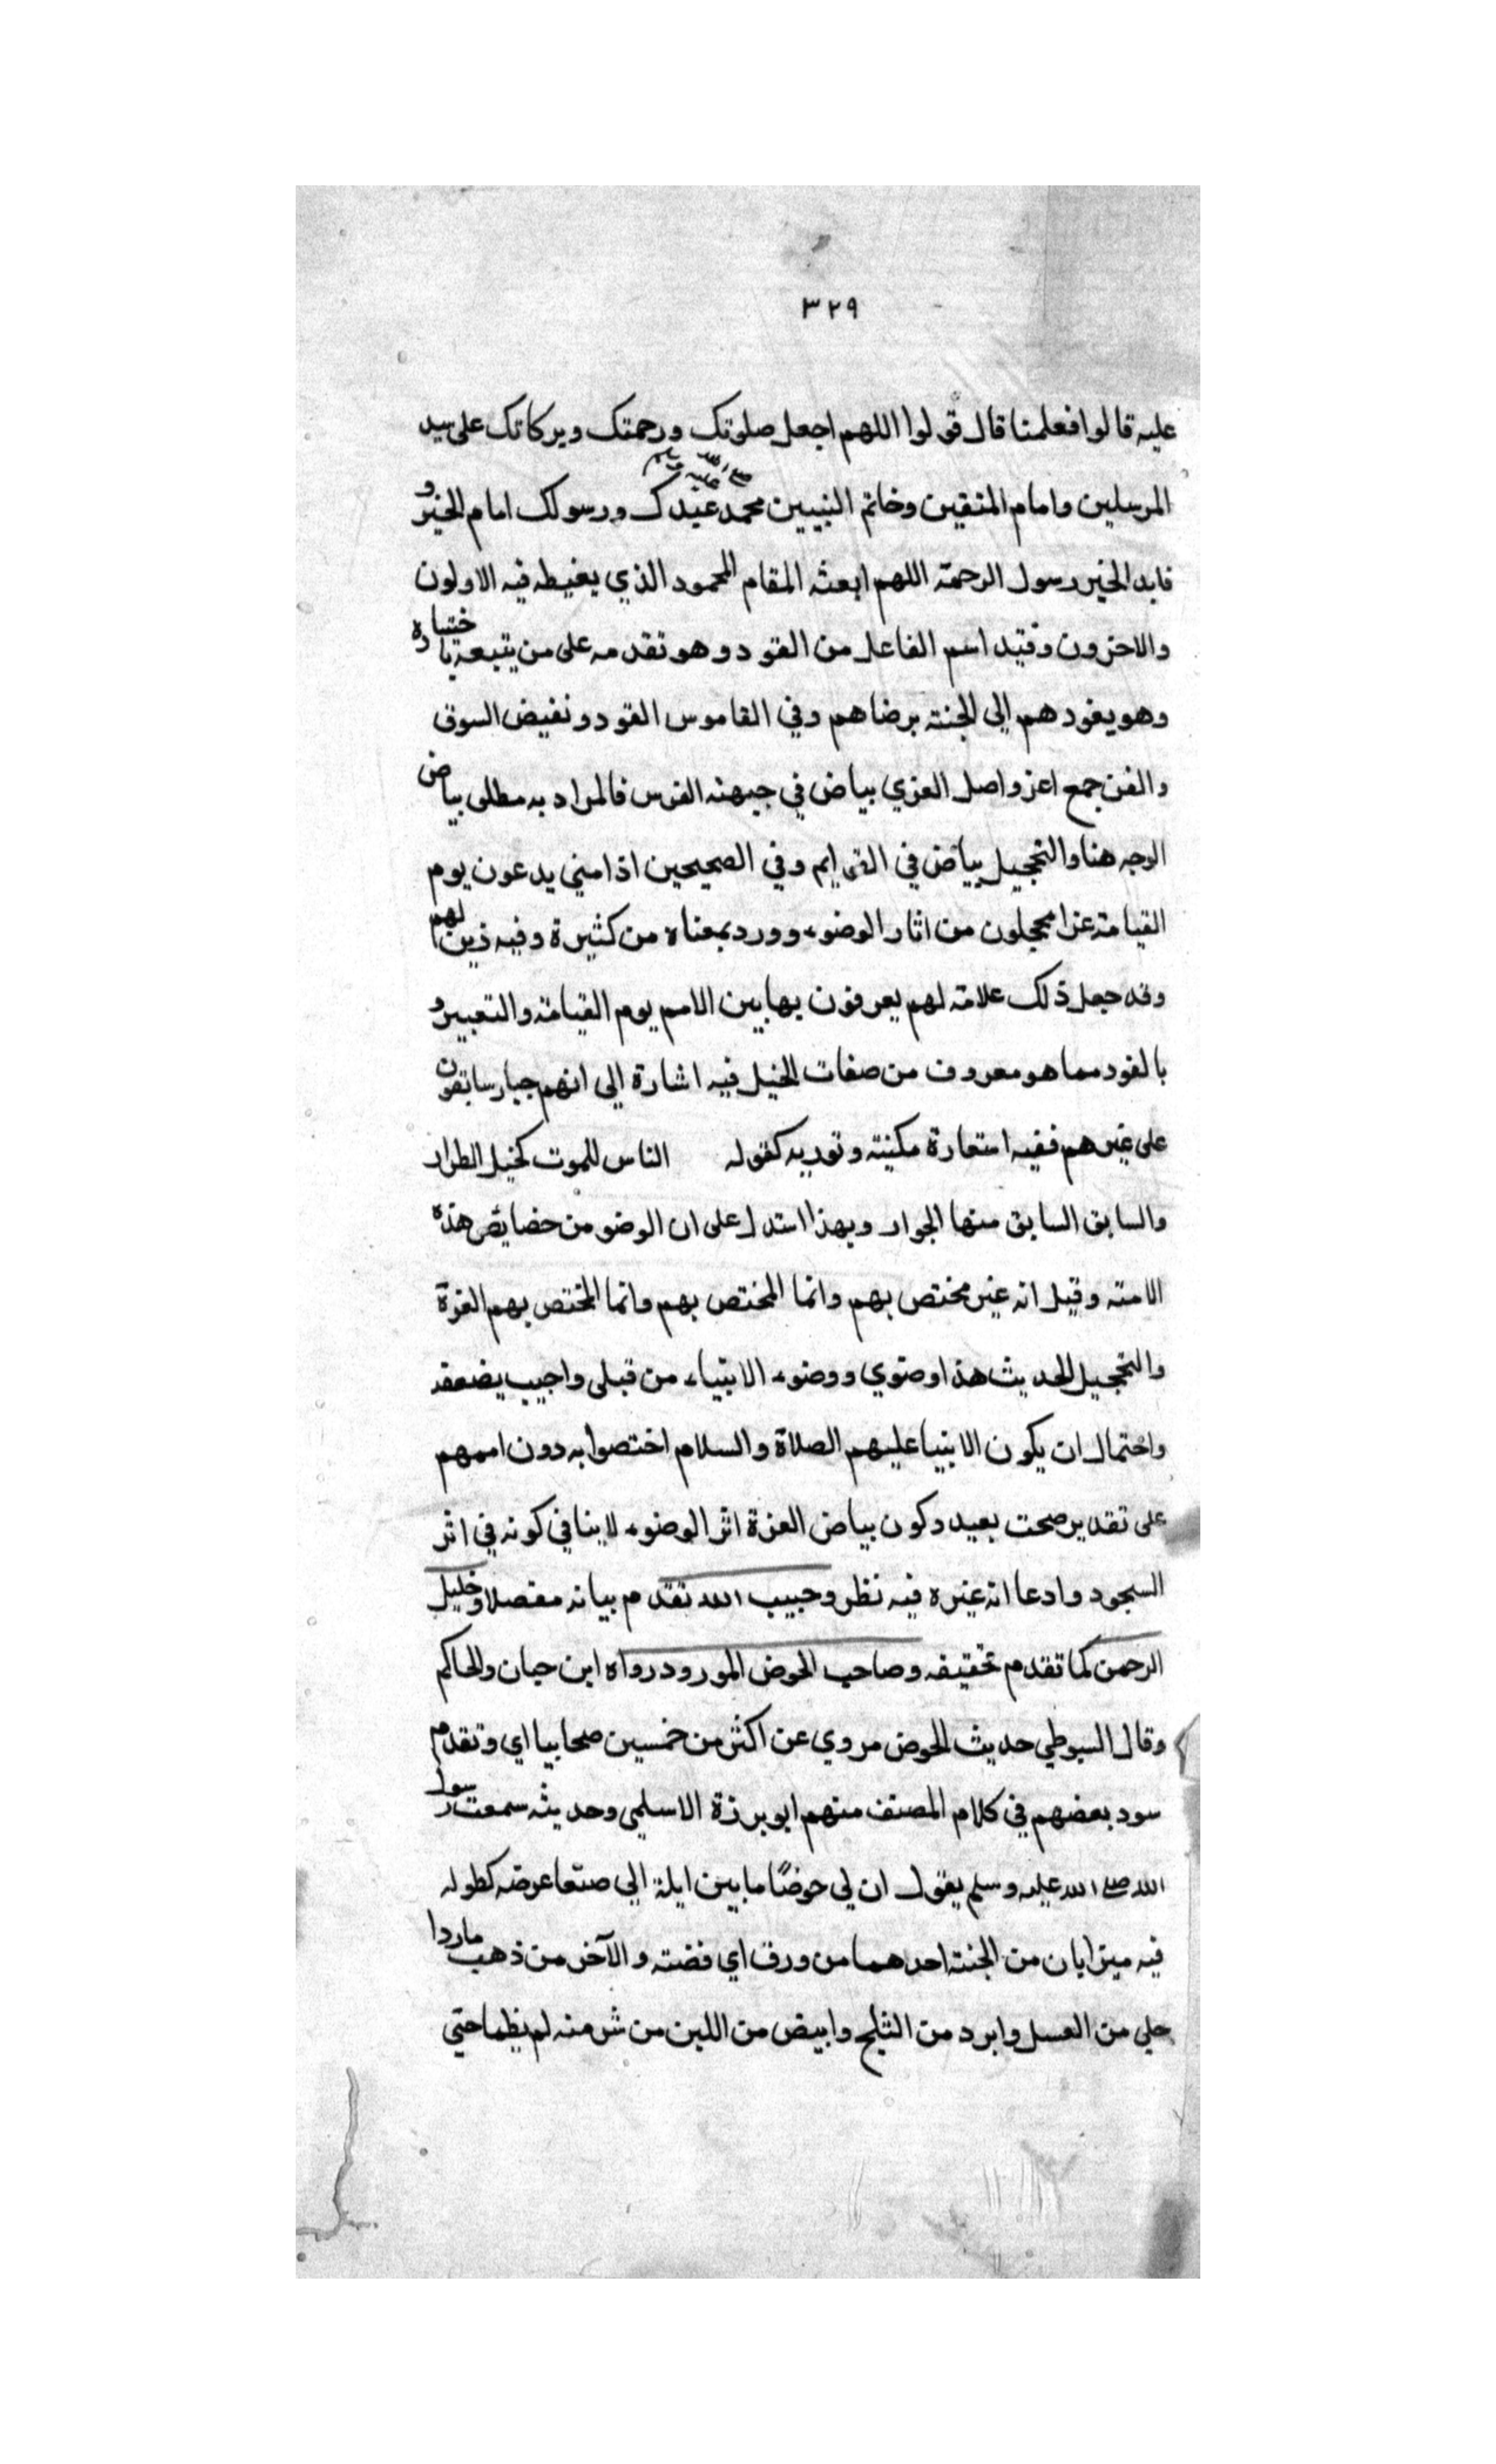 ٣٢٩
عليه قالوا فعلمنا قال قولوا اللهم اجعل صلوتك ورحمتك وبركاتك على سيد
المرسلين وامام المتقين وخاتم النبيين محمد صلى الله عليه وسلم عبدك ورسولك امام الخير و
قايد الخير رسول الرحمة اللهم ابعثه المقام المحمود الذي يغبطه فيه الاولون
والاخرون وقيد اسم الفاعل من القود وهو تقدمه على من يتبعه باختياره
وهو يقودهم الى الجنة برضاهم وفي القاموس القود ونقيض السوق
والغر جمع اغر واصل الغري بياض في جبهة الفرس فالمراد به مطلق بياض
الوجه هنا والتحجيل بياض في القوايم وفي الصحيحين اذ امني يدعون يوم
القيامة غرا محجلون من اثار الوضوء وورد بمعناه من كثيرة وفيه ذين لهم
وقد جعل ذلك علامة لهم يعرفون بها بين الامم يوم القيامة والتعبير و
بالقود مما هو معروف من صفات الخيل فيه اشارة الى انهم جياد سابقون
على غيرهم ففيه استعارة مكنية وتوريه كقوله الناس للموت كخيل الطراد
والسابق السابق منها الجواد وبهذا استدل على ان الوضو من خصايص هذه
الامة وقيل انه غير مختص بهم وانما المختص بهم وانما المختص بهم الغرة
والتحجيل لحديث هذا وضوي ووضوء الانبياء من قبلي واجيب بضعفه
واحتمال ان يكون الانبيا عليهم الصلاة والسلام اختصوا به دون اممهم
على تقدير صحت بعيد وكون بياض الغرة اثر الوضوء لا ينافي كونه في اثر
السجود وادعا انه غيره فيه نظر وحبيب الله تقدم بيانه مفصلا وخليل
الرحمن كما تقدم تحقيقه وصاحب الحوض المورود رواه ابن حبان والحاكم
وقال السيوطي حديث الحوض مروي عن اكثر من خمسين صحابيا اي وتقدم
سود بعضهم في كلام المصنف منهم ابو برزة الاسلمي وحديثه سمعت رسول
الله صلى الله عليه وسلم يقول ان لي حوضًا ما بين ايلة الى صنعا عرضه كطوله
فيه ميزابان من الجنة احدهما من ورق اي فضة والآخر من ذهب ماردا
حلى من العسل وابرد من الثلج وابيض من اللبن من شر منه لم يظما حتى